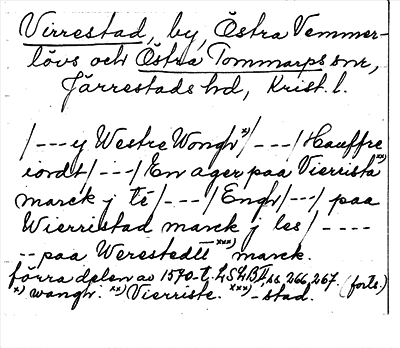 Virrestad, by, Östra Vemmer-
lövs och Östra Tommarps snr,
Järrestads hd, Krist. l.
/---y Westre Wongh x)/---/Hauffre
iordt/---/En ager paa Vierrista xx)
marck j té/---/Engh/---/ paa
Wierristad marck j les/----
--paa Werestedtt xxx) marck.
förra delen av 1570-t. LSLB II, ss. 266, 267. (forts.)
x) wangh. xx) Vierriste. xxx) -stad.